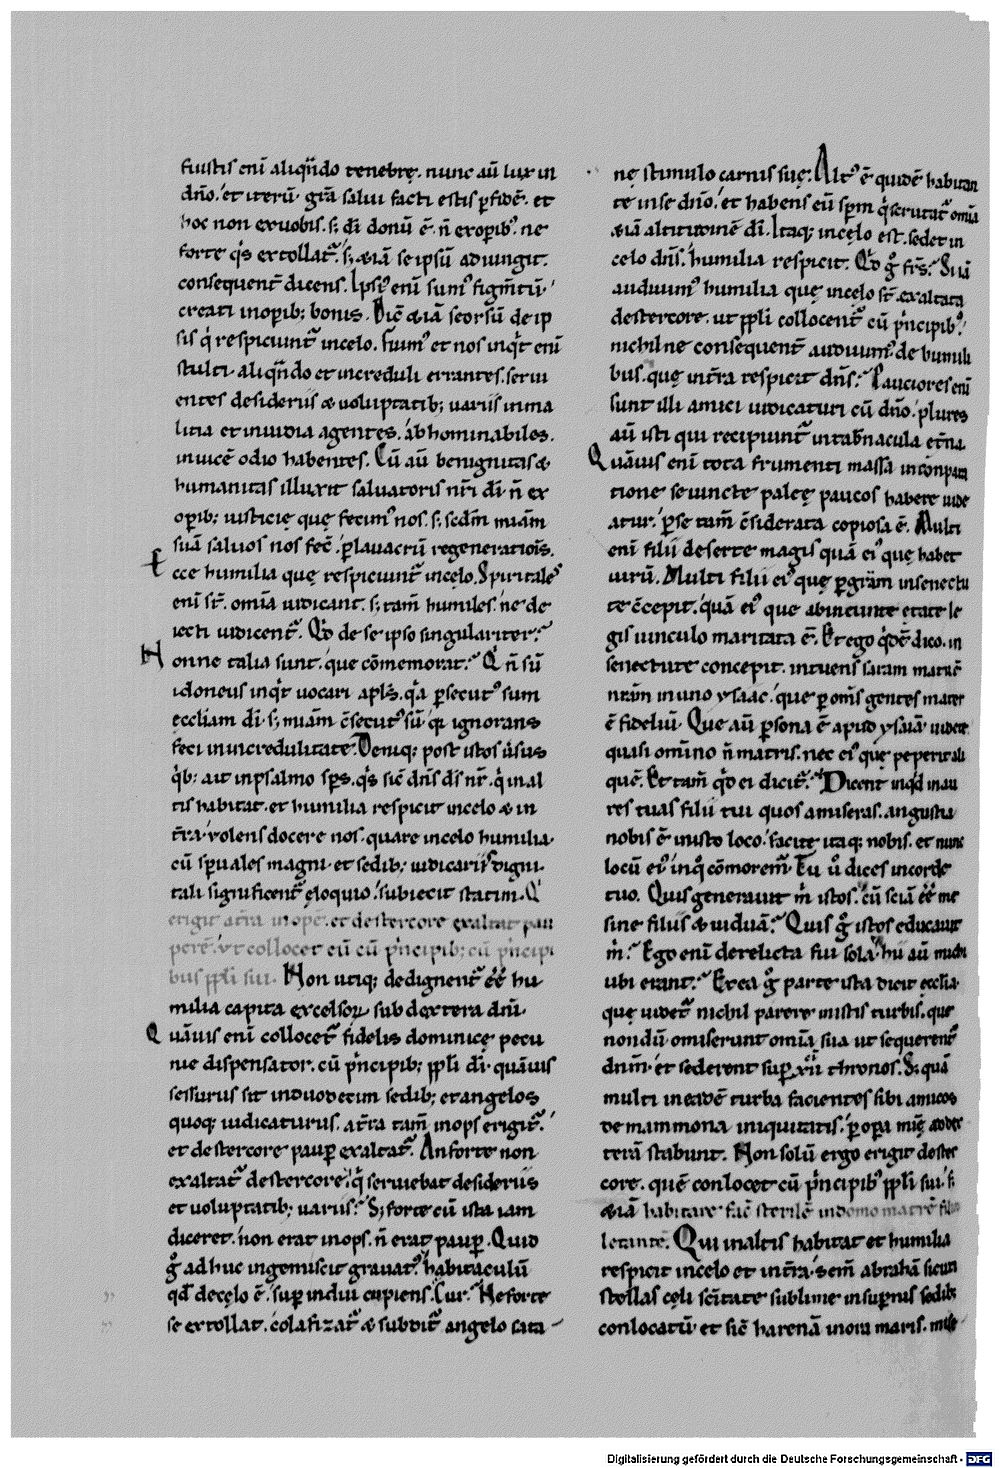 fuistis enī aliqn̄do tenebrę. nunc aū lux in
dño. et iterū. grā salui facti estis p fidē. et
hoc non ex uobis. s; dī donū ē. ñ ex opib'. ne
forte q's extollat̄. s; & iā se ipsū adiungit.
consequent̄ dicens. Ipsi' enī sum' figm̄tū
creati in opib; bonis. Dic̄ & iā seorsū de ip
sis q' respiciunt̄ in celo. fuim' et nos inq't enī
stulti. aliqn̄do et increduli errantes. serui
entes desideriis & uoluptatib; uariis in ma
litia et inuidia agentes. abhominabiles.
inuicē odio habentes. Cū aū benignitas &
humanitas illuxit saluatoris nr̄i dī. ñ ex
opib; iusticię quę fecim' nos. s; scdm̄ miām
suā saluos nos fec̄. p lauacrū regeneratiōis.
Ecce humilia quę respiciunt̄ in cęlo. Spiritales
enī st̄. omīa iudicant. s; tam̄ humiles. ne de
iecti iudicent̄. Qd̄ de se ipso singulariter.
Nonne talia sunt. que cōmemorat. Q' ñ sū
idoneus inq't uocari apls̄. q'a psecut' sum
ęccliam dī. s; miām c̄secut' sū. q' ignorans
feci in incredulitate. Deniq; post istos uersus
q'b; ait in psalmo sps̄. q's sic̄ dn̄s ds̄ nr̄. q' in al
tis habitat. et humilia respicit in celo & in
t̄ra. uolens docere nos. quare in celo humilia.
cū spuales magni. et sedib; iudicariis digni.
tali significent̄ eloquio. subiecit statim. Q'
erigit a t̄ra inopē. et de stercore exaltat pau
perē. ut collocet eū cū p'ncipib; cū p'ncipi
bus ppl̄i sui. Non utiq; dedignent̄ eē hu
milia capita excelsorꝝ sub dextera dn̄i.
Quāuis enī collocet̄ fidelis dominicę pecu
nie dispensator. cū p'ncipib; ppl̄i dī. quāuis
sessurus sit in duodecim sedib; et angelos
quoq; iudicaturus. a t̄ra tam̄ inops erigit̄.
et de stercore paup exaltat̄. An forte non
exaltat̄ de stercore. q' seruiebat desideriis
et uoluptatib; uariis. S; forte cū ista iam
diceret. non erat inops. ñ erat paup. Quid
g̊ adhuc ingemiscit grauat'. habitaculū
qd̄ de cęlo ē. sup indui cupiens. Cur. Ne forte
se extollat. colafizat̄ & subdit̄ angelo sata
nę stimulo carnis suę. Alt' ē quidē habitan
te in se dn̄o. et habens eū spm̄ q' scrutat̄ omīa
& iā altitudinē dī. Itaq; in cęlo est. sedet in
celo dn̄s. humilia respicit. Qd̄ g̊ frs̄. Si iā
audiuim' humilia quę in celo st̄. exaltata
de stercore. ut ppl̄i collocent̄ cū p'ncipib'.
nichil ne consequent̄ audiuim' de humili
bus. quę in t̄ra respicit dn̄s. Pauciores enī
sunt illi amici iudicaturi cū dn̄o. plures
aū isti qui recipiunt̄ in tab'nacula et̄na.
Quāuis enī tota frumenti massa in conpara
tione seiuncte palcę paucos habere uide
atur. p se tam̄ c̄siderata copiosa ē. Multi
enī filii deserte magis quā ei' quę habet
uirū. Multi filii ei' quę p grām in senectu
te c̄cepit. quā ei' que ab ineunte ętate le
gis uinculo maritata ē. Et ego q'dē dico. in
senectute concepit. intuens saram matrē
nr̄am in uno ysaac. que p om̄s gentes mater
ē fideliū. Que aū psona ē apud ysaiā. uidete
quasi omīno ñ matris. nec ei' que peperit ali
quē. Et tam̄ qd̄ ei dicit̄. Dicent inqd̄ in au
res tuas filii tui quos amiseras. angustus
nobis ē iusto loco. facite itaq; nobis. et nunc
locū ei' inq' cōmorem̄. Tu ū dices in corde
tuo. Quis generauit m̄ istos. cū sciā eē me
sine filiis & uiduā. Quis g̊ istos educauit
m̄. Ego enī derelicta fui sola. hii aū michi
ubi erant. Ex ea g̊ parte ista dicit ęcclia.
quę uidet̄ nichil parere in istis turbis. que
nondū omiserunt omīa sua ut sequerent̄
dnm̄. et sederent sup xii thronos. S; quā
multi in eadē turba facientes sibi amicos
de mammona iniquitatis. p opa mię ad dex
terā stabunt. Non solū ergo erigit de ster
core. quē conlocet cū p'ncipib' ppl̄i sui. s;
& iā habitare fac̄ sterilē in domo matrē filiis
letantē. Qui in altis habitat et humilia
respicit in celo et in t̄ra. sem̄ abrahā sicut
stellas celi sc̄itate sublime in supnis sedib;
conlocatū et sic̄ harenā in ora maris.